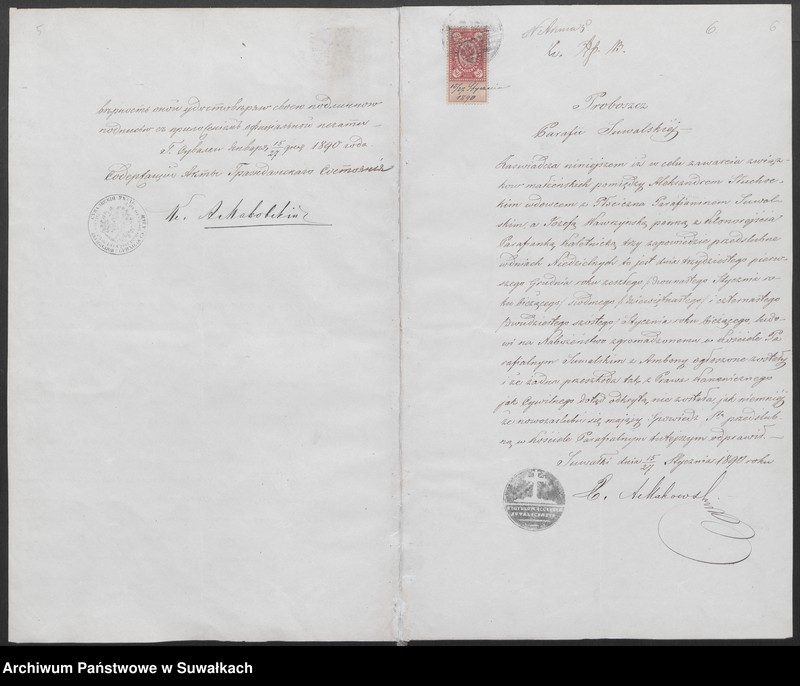 5
вѣрность сей удостовѣряю своею подписью
подписью съ приложеніемъ оффиціальной печати —
Г. Сувалки Января 15/27 дня 1890 года
Содержащій Акты Гражданскаго Состоянія
К. А. Маковскій
6. 6
15/27 Stycznia
1890
Proboszcz
Parafii Suwalskiéj
Zaświadcza niniejszem iż w celu zawarcia związ-
kow małżeńskich pomiędzy Aleksandrem
kim wdowcem z Płociczna Parafianinem Suwal-
skim, a Józefą Wawrzynską panną z
Parafianką Kaletnicką, trzy zapowiedzie przedślubne
w dniach Niedzielnych to jest dnia trzydziestego pierw-
szego Grudnia roku zeszłego /dwunastego Stycznia ro-
ku bieżącego/ siódmego /dziewiętnastego/ i czternastego
/dwudziestego szóstego/ Stycznia roku bieżącego, ludo-
wi na Nabożeństwo zgromadzonemu w Kościele Pa-
rafialnym Suwalskim z Ambony ogłoszone zostały
i że żadna przeszkoda tak z Prawa Kanonicznego
jak Cywilnego dotąd odkrytą nie została, jak niemniéj
że nowozaślubić się mający Spowiedź Stą przedślub-
ną w Kościele Parafialnym tutejszym odprawił. —
Suwałki dnia 15/27 Stycznia 1890 roku
X. A. Makowski
Archiwum Państwowe w Suwałkach